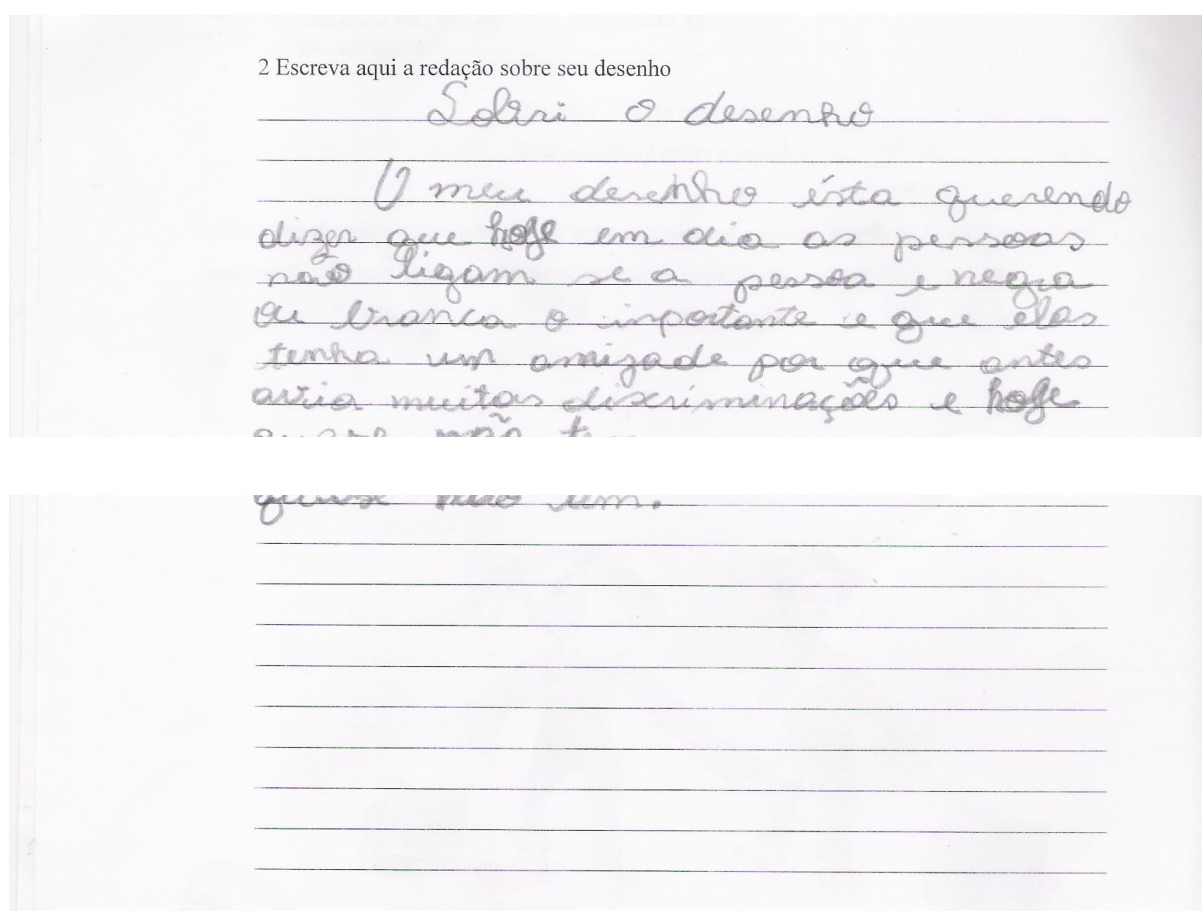 2 Escreva aqui a redação sobre seu desenho
Sobri o desenho
O meu desenho ésta querendo
dizer que hoje em dia as pessoas
não ligam se a pessoa e negra
ou branca o importante e que elas
tenha um amizade por que antes
avia muitas discriminações e hoje
quase não tem.